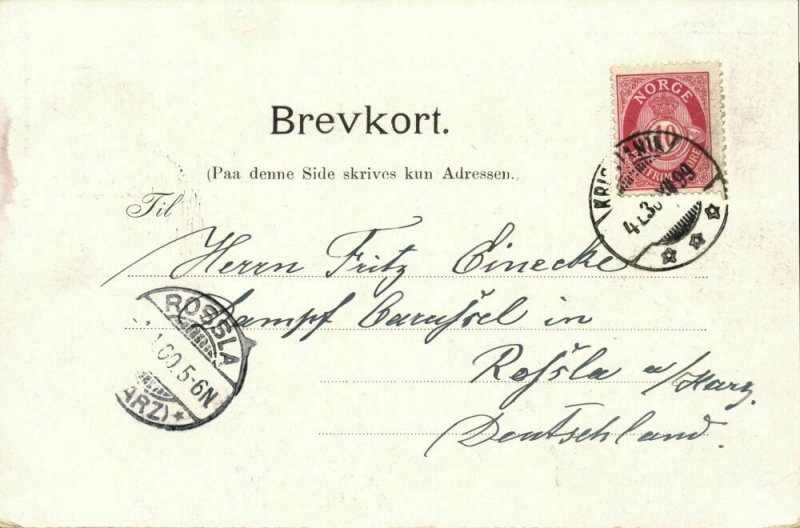 Brevkort.
(Paa denne Side skrives kun Adressen.)
NORGE
10
FRIMÆRKE
KRISTIANIA
30 XII 99
Til
Herrn Fritz Einecke
Dampf Caroussel in
Rossla a/Harz.
Deutschland.
ROSSLA
1.00.5-6N
(HARZ)